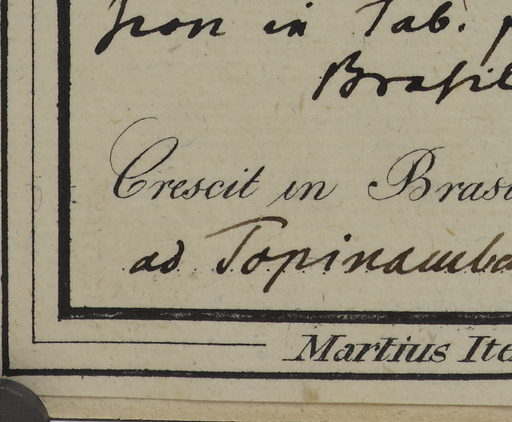 in Tab.
Brasil
Crescit in Brasi
ad Topinamba
Martius Ite